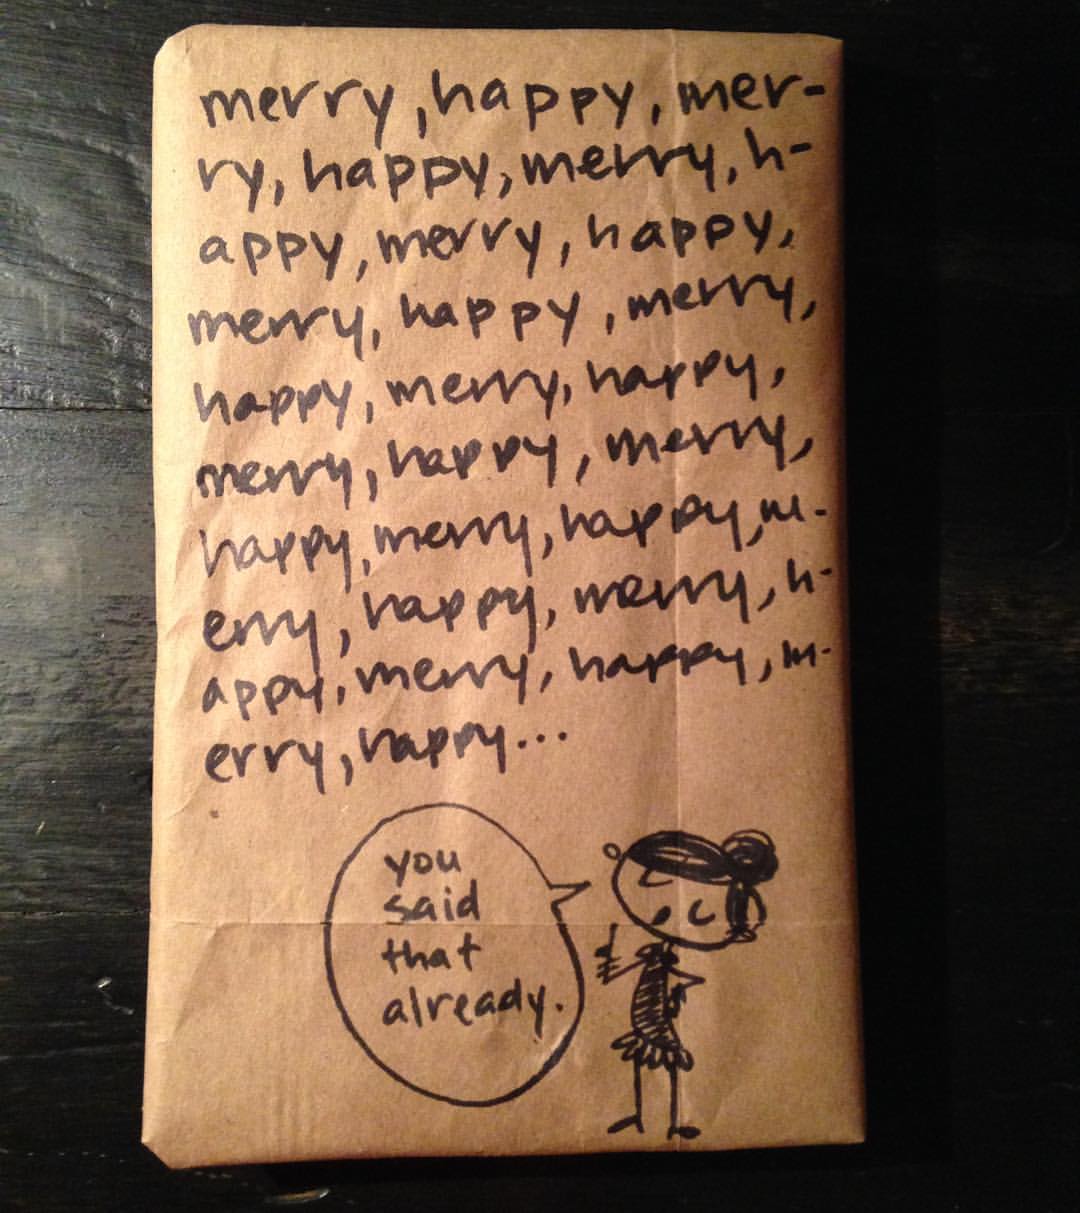 merry, happy, mer-
ry, happy, merry, h-
appy, merry, happy,
merry, happy, merry,
happy, merry, happy,
merry, happy, merry,
happy, merry, happy, m-
erry, happy, merry, h-
appy, merry, happy, m-
erry, happy...
you
said
that
already.